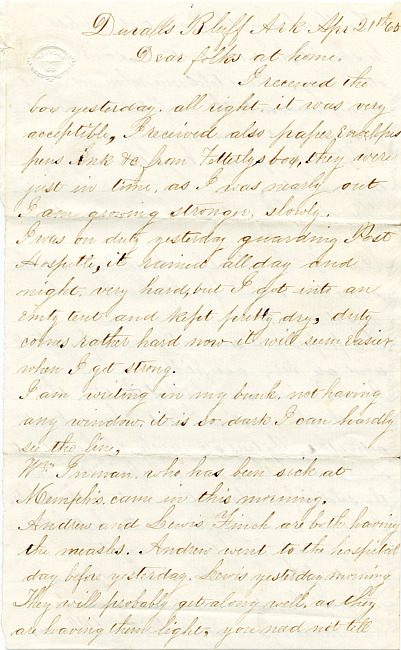 Duvalls Bluff Ark Apr 21st 65
Dear folks at home.
I received the
box yesterday. all right. it was very
acceptible, I received also paper Envelopes
pens Ink &c, from Fetterlys box, they were
just in time, as I was nearly out
I am growing stronger, slowly.
I was on duty yesterday guarding Post
Hospittle, it rained all day and
night, very hard, but I got into an
Emty tent and kept pretty dry, duty
comes rather hard now it will seem easier
when I get strong.
I am writing in my bunk, not having
any window, it is so dark I can hardly
see the line,
Wm Inman, who has been sick at
Memphis, came in this morning.
Andrew and Lewis Finch are both having
the measles. Andrew went to the hospital
day before yesterday. Lewis yesterday morning
They will probably get along well, as they
are having them light, you need not tell